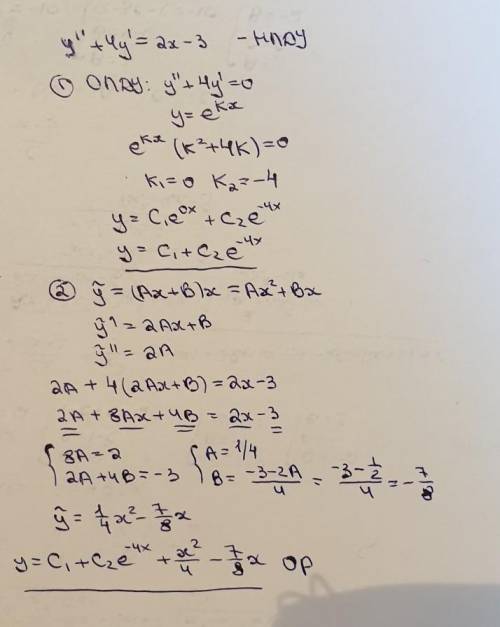 y'' + 4y' = 2x - 3 - НЛДУ
① ОЛДУ: y'' + 4y' = 0
y = e^{kx}
e^{kx} (k² + 4k) = 0
k₁ = 0 k₂ = -4
y = C₁e^{0x} + C₂e^{-4x}
y = C₁ + C₂e^{-4x}
② ỹ = (Ax + B)x = Ax² + Bx
ỹ' = 2Ax + B
ỹ'' = 2A
2A + 4(2Ax + B) = 2x - 3
2A + 8Ax + 4B = 2x - 3
{ 8A = 2 { A = 1/4
2A + 4B = -3 B = \frac{-3-2A}{4} = \frac{-3-\frac{1}{2}}{4} = -\frac{7}{8}
ỹ = \frac{1}{4}x² - \frac{7}{8}x
y = C₁ + C₂e^{-4x} + \frac{x²}{4} - \frac{7}{8}x ОР